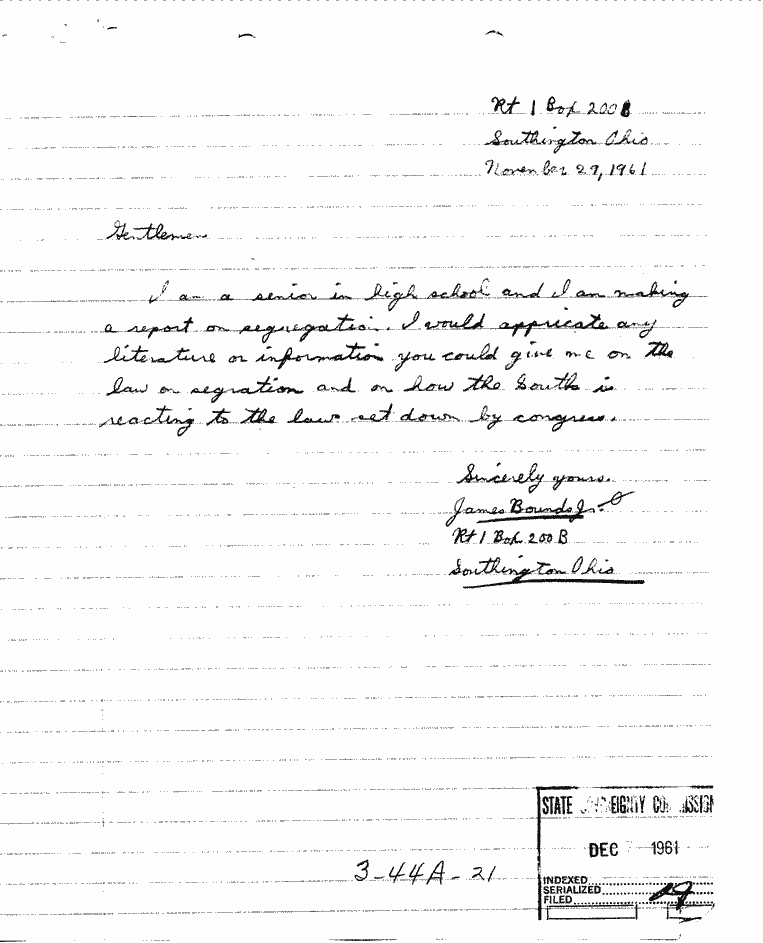 Rt 1 Box 200B
Southington Ohio
November 29, 1961
Gentlemen
I am a senior in high school and I am making
a report on segregation. I would appricate any
literature or information you could give me on the
law on segration and on how the South is
reacting to the laws set down by congress.
Sincerely yours.
James Bounds Jr.
Rt 1 Box 200 B
Southington Ohio
STATE
DEC 1961
3-44A-21
INDEXED
SERIALIZED
FILED